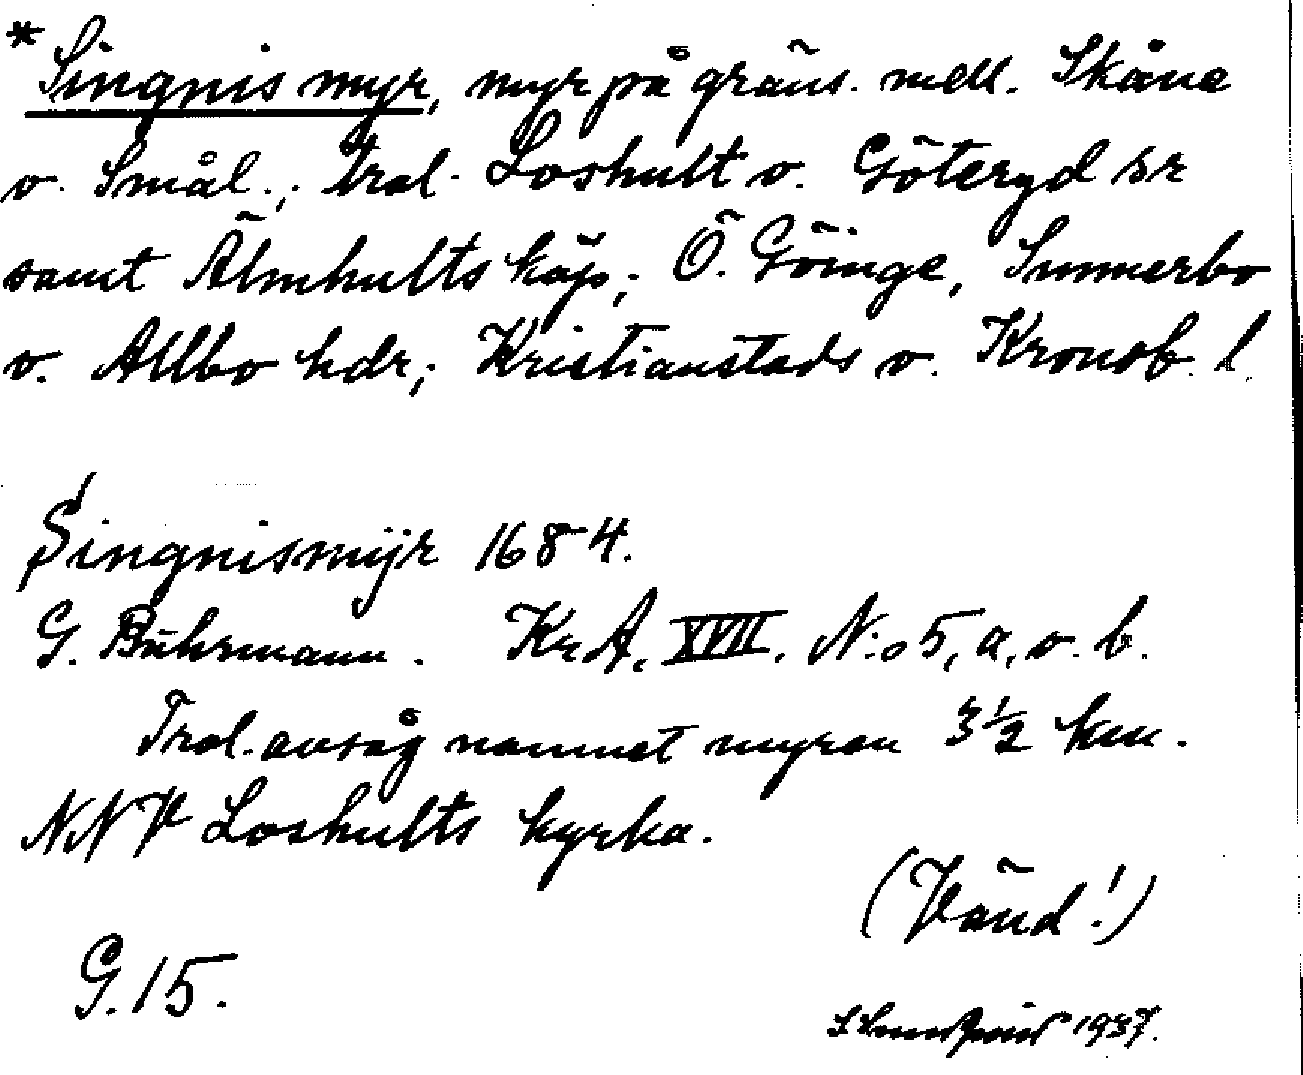 *Singnis myr, myr på gräns. mell. Skåne
o. Smål.; trol. Loshult o. Göteryd sr
samt Älmhults köp; Ö. Göinge, Sunnerbo
o. Allbo hdr; Kristianstads o. Kronob. l.
Singnismÿr 1684.
G. Buhrmann. KrA. XVII. N:o 5, a, o. b.
Trol. avsåg namnet myren 3½ km.
NNV Loshults kyrka.
(Vänd!)
G. 15.
1937.